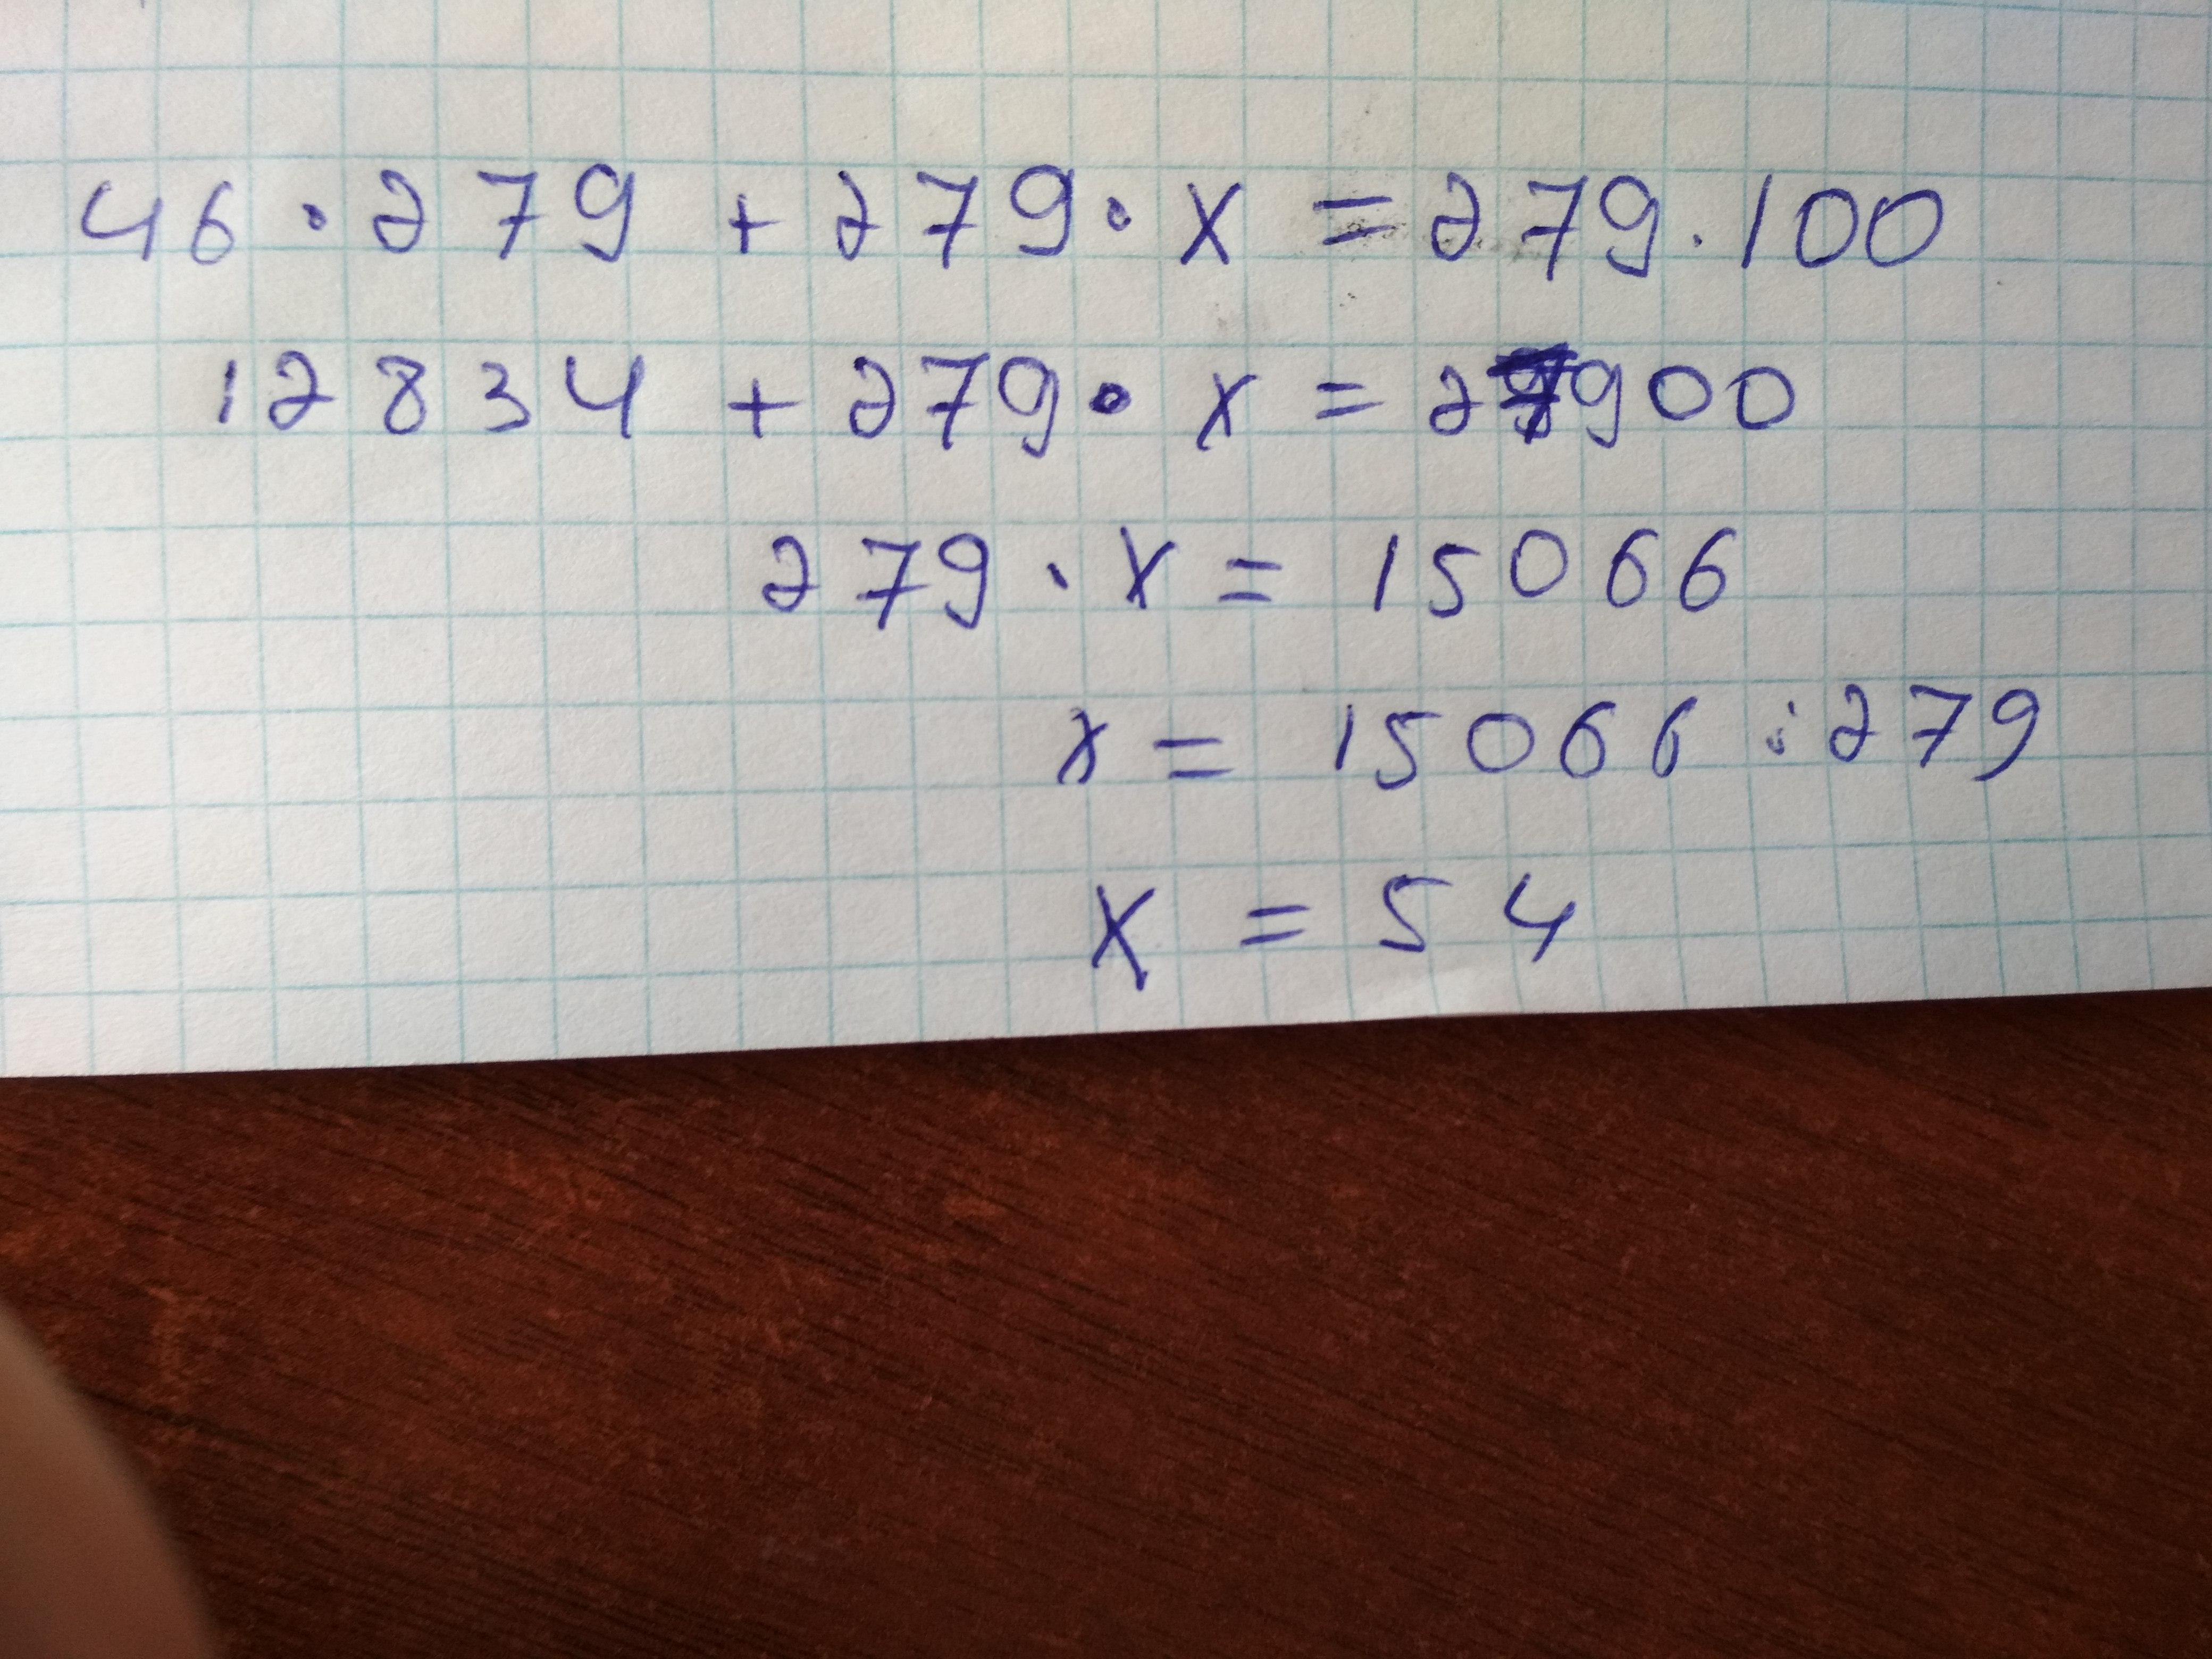 46 · 279 + 279 · x = 279 · 100
12834 + 279 · x = 27900
279 · x = 15066
x = 15066 : 279
x = 54